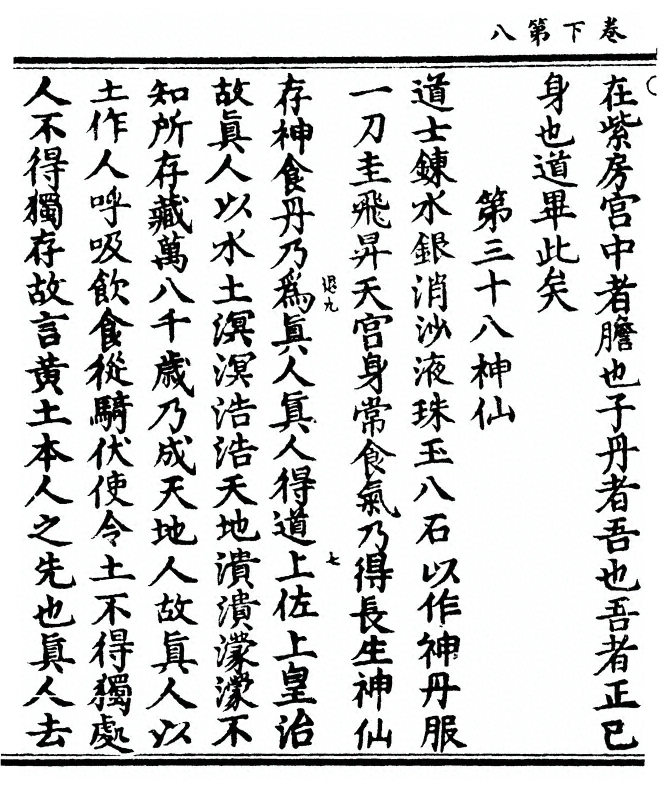 卷下第八
在紫房宫中者膽也子丹者吾也吾者正已
身也道畢此矣
第三十八神仙
道士鍊水銀消沙液珠玉八石以作神丹服
一刀圭飛昇天宫身常食氣乃得長生神仙
退九
七
存神食丹乃爲眞人眞人得道上佐上皇治
故眞人以水土溟溟浩浩天地濆濆濛濛不
知所存藏萬八千歳乃成天地人故眞人以
土作人呼吸飲食從騎伏使令土不得獨處
人不得獨存故言黄土本人之先也眞人去